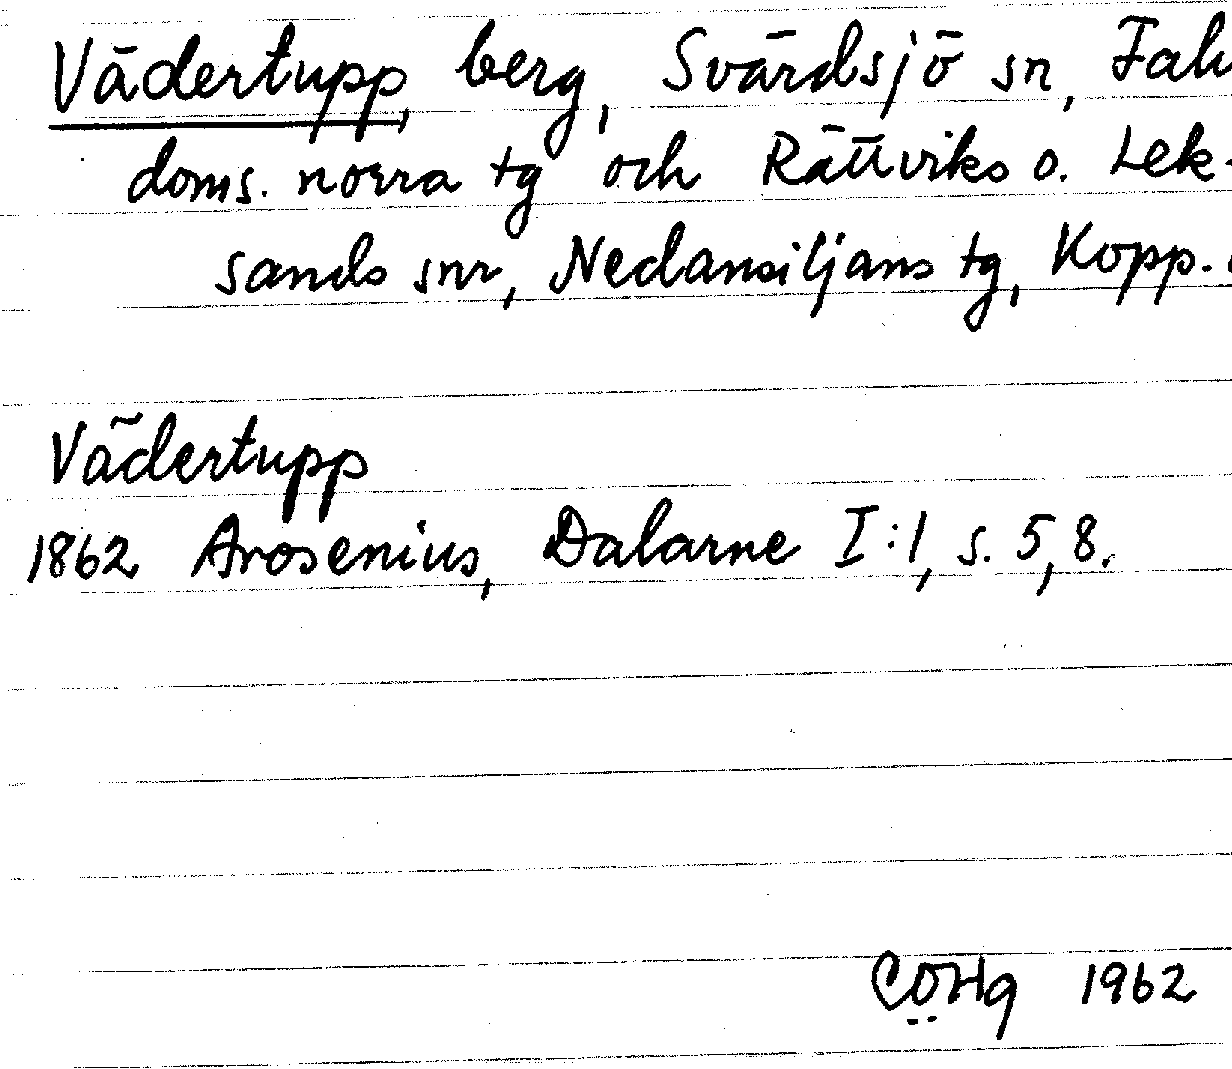 Vädertupp, berg, Svärdsjö sn, Falu
doms. norra tg och Rättviks o. Lek-
sands snr, Nedansiljans tg, Kopp.
Vädertupp
1862 Arosenius, Dalarne I:1, s. 5, 8.
CÖHg 1962